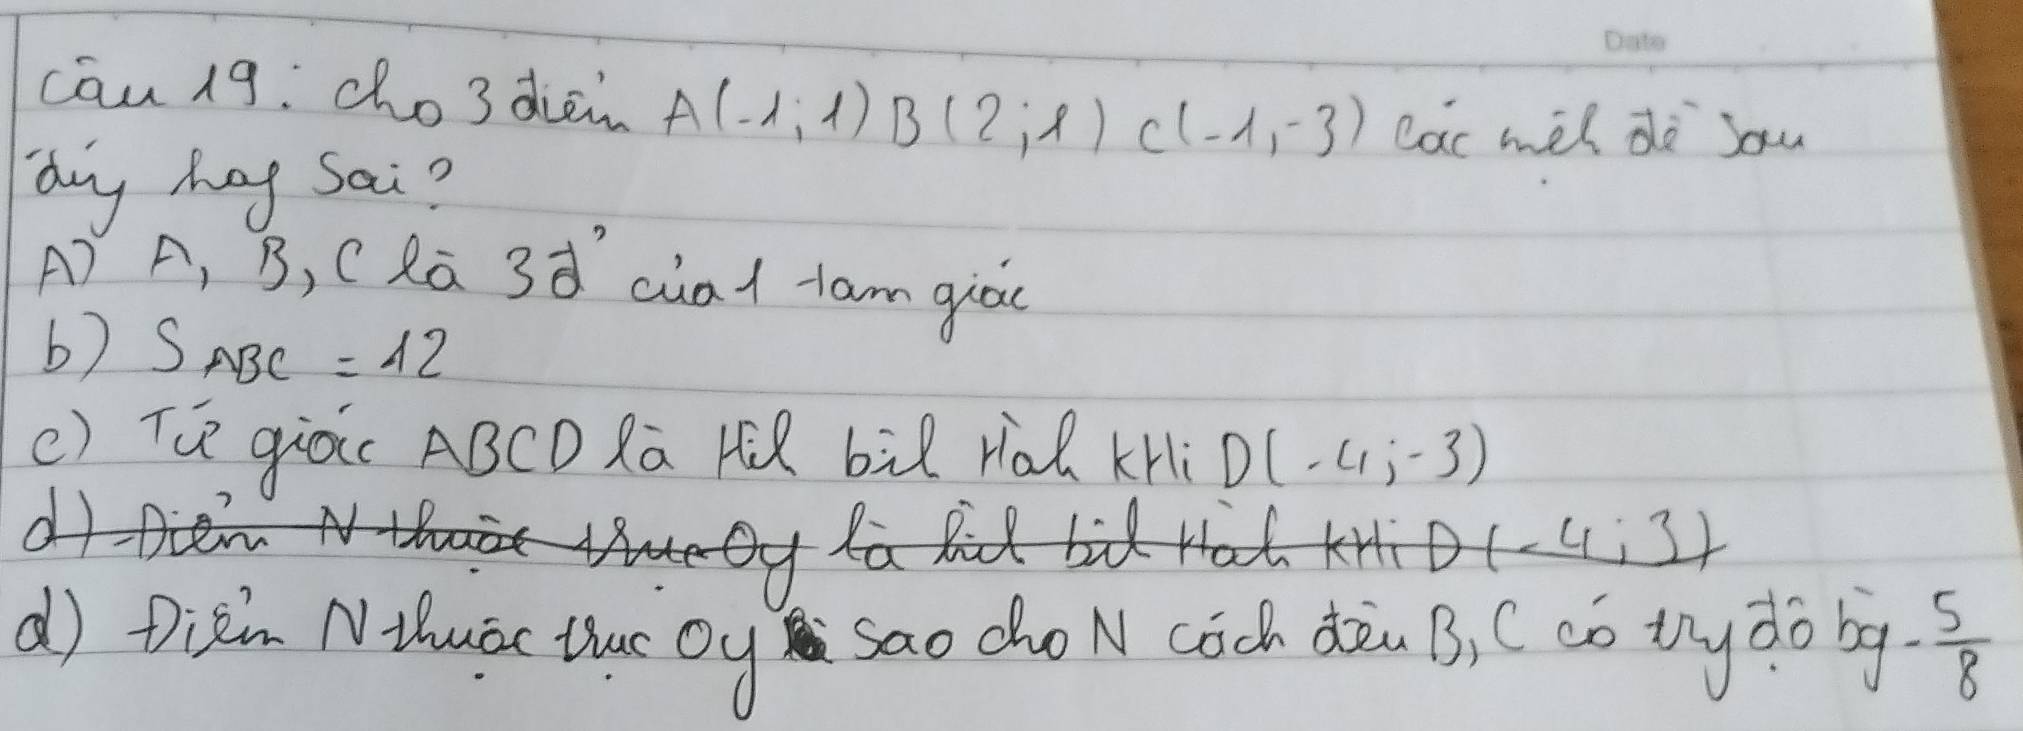 Date
Câu 19: cho 3 điểm A(-1; 1) B(2; 1) C(-1; -3) các mệh đề sau
đúy hay Sai?
A) A, B, C là 3 đ' của 1 tam giác
b) S ABC = 12
c) Tứ giác ABCD là Hìl bìl Hàh kHi D(-4; -3)
d) Điểm N thuộc trục Oy là hìl bìl Hàh kHi D(-4; 3)
d) Điểm N thuộc trục Oy sao cho N cách đều B, C có tuy độ bg - 5/8